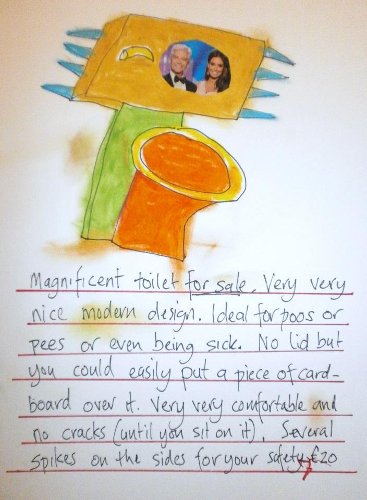 Magnificent toilet for sale. Very very
nice modern design. Ideal for poos or
pees or even being sick. No lid but
you could easily put a piece of card-
board over it. Very very comfortable and
no cracks (until you sit on it). Several
spikes on the sides for your safety. £20